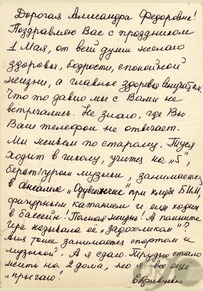 Дорогая Александра Федоровна!
Поздравляю Вас с праздником
1 Мая, от всей души желаю
здоровья, бодрости, спокойной
жизни, а главное здоровья
Что то давно мы с Вами не
встречались. Не знаю, где Вы.
Ваш телефон не отвечает.
Мы живем по старому.
ходит в школу, учится на „5",
берет уроки музыки, занимается
в ансамбле при клубе
фигурным катанием и еще ходит
в бассейн! Полная жизнь! А помните
где называла её
Она тоже занимается спортом и
музыкой. А я сдаю. Трудно стало
жить на 2 дома, но я все еще